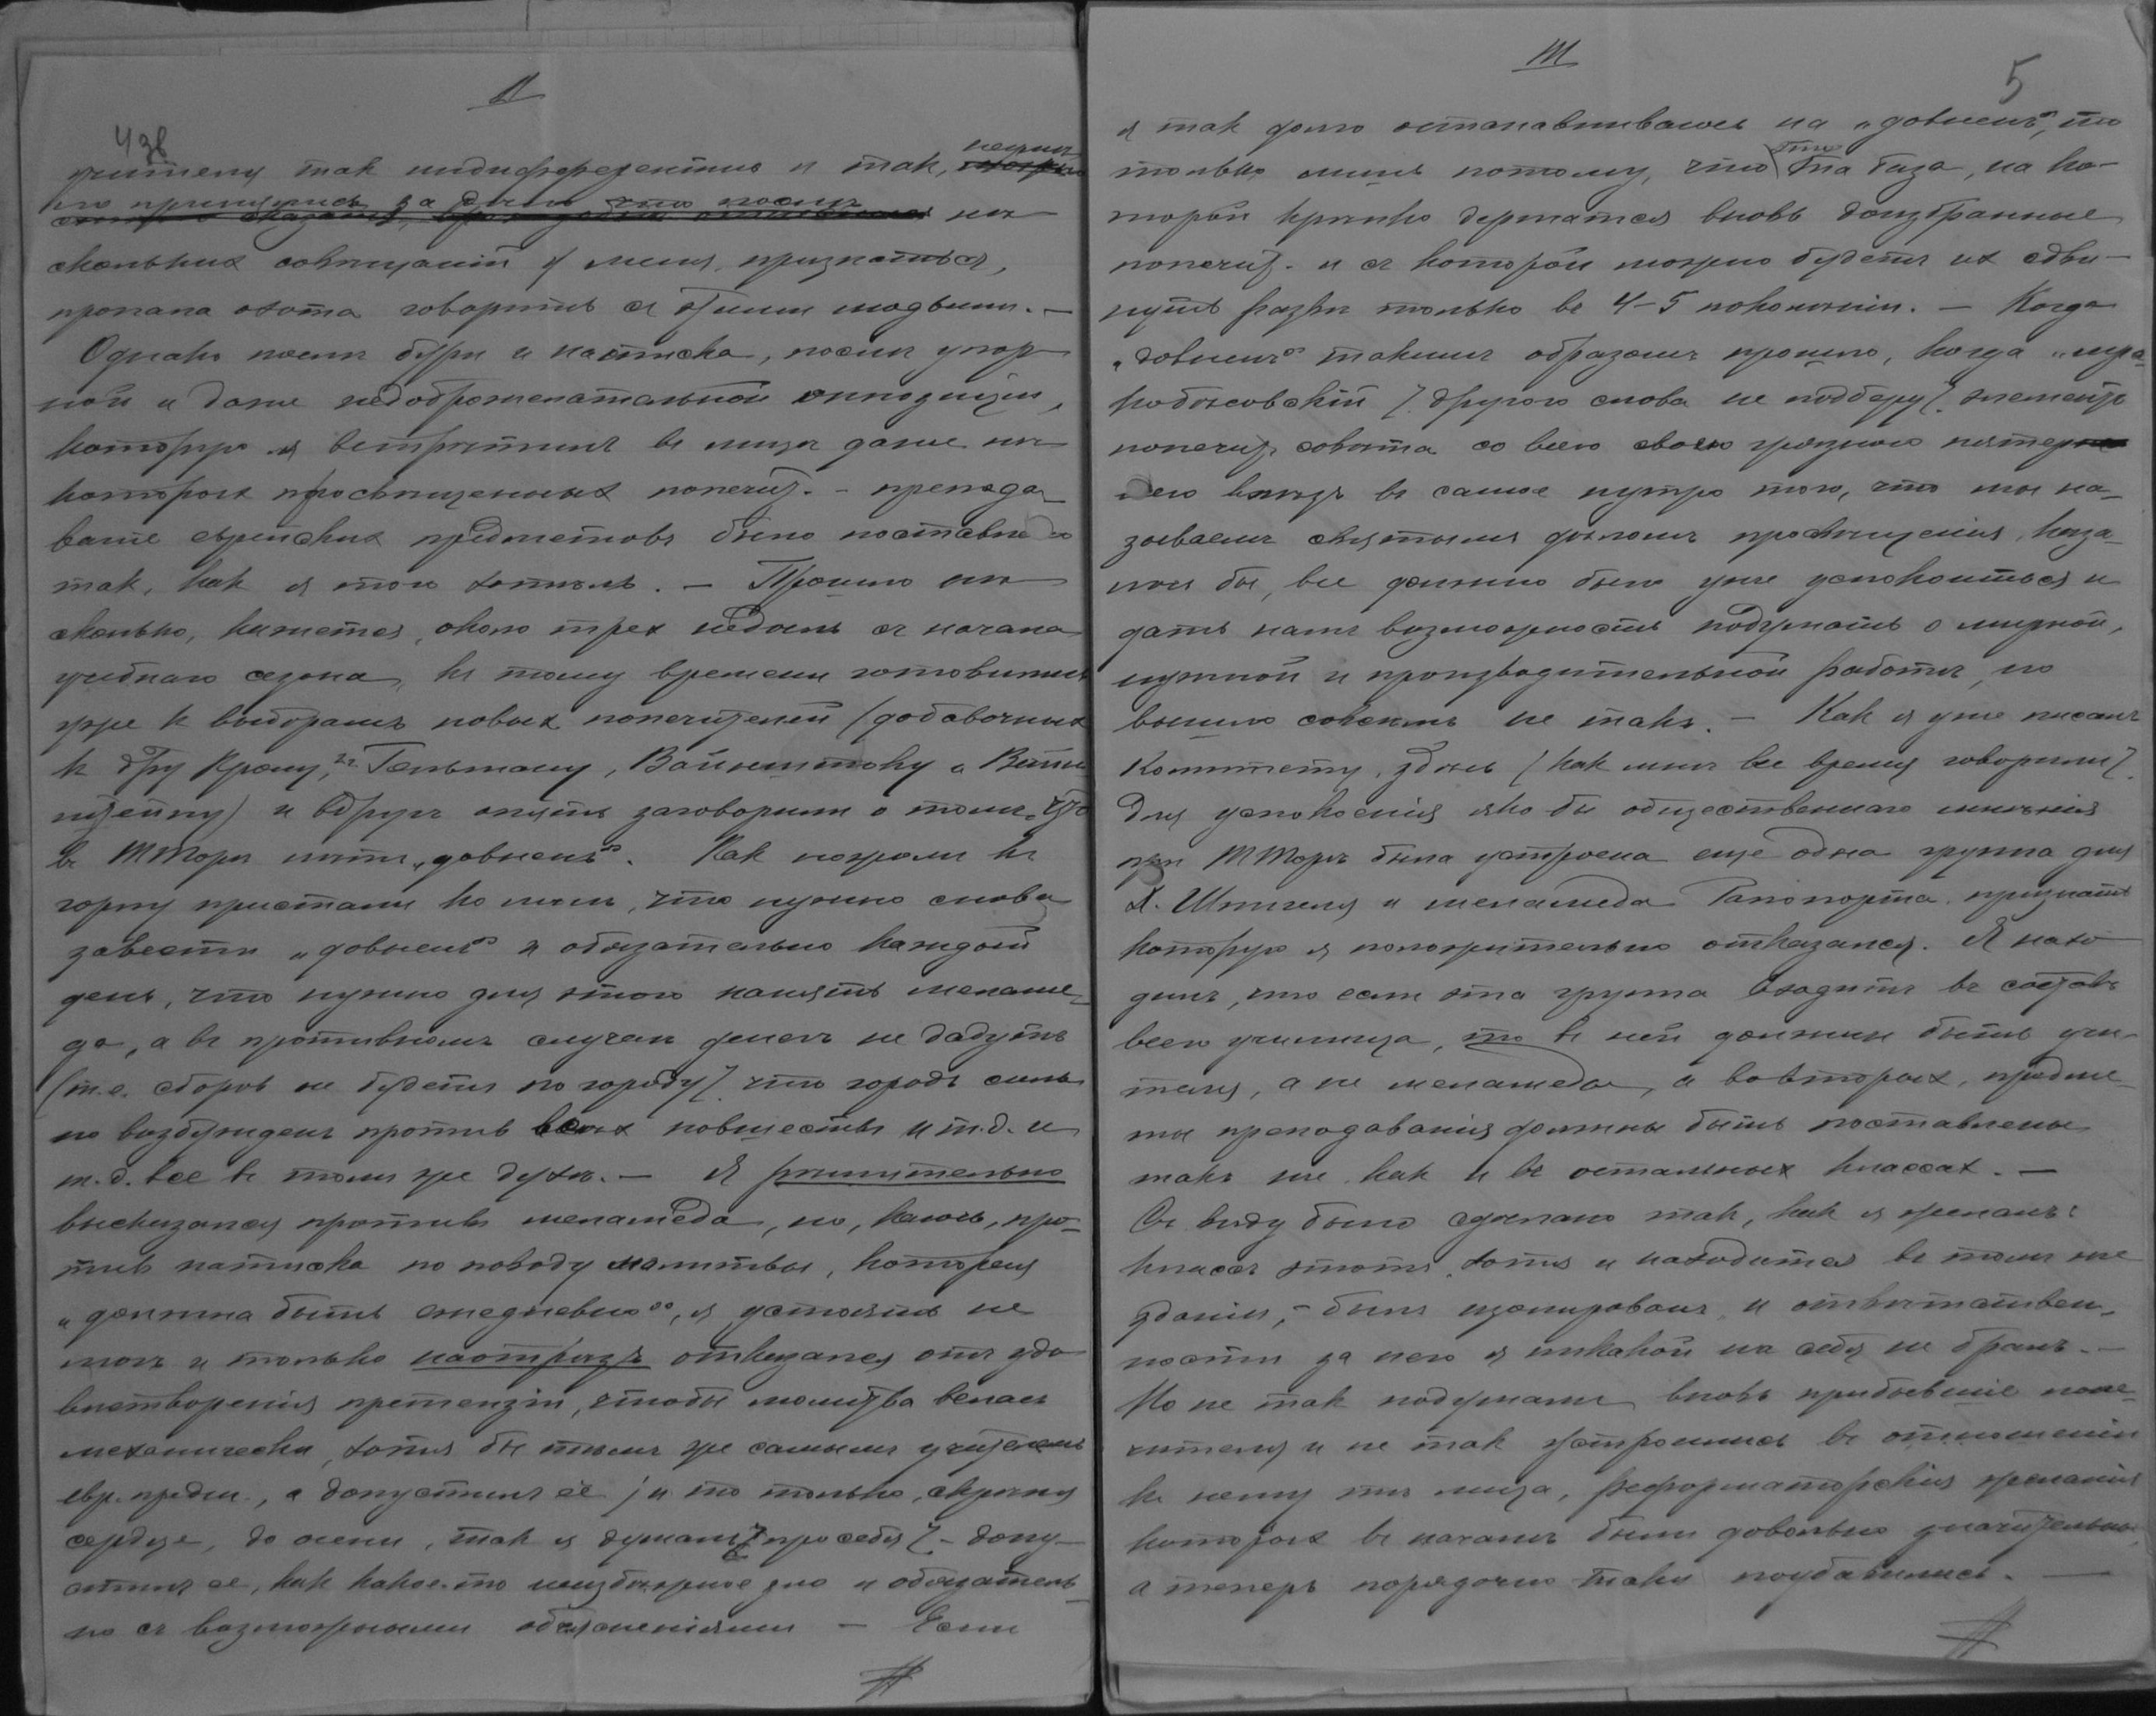 II
4 зв
учителя так индифферентно и так, нелов-
ко принялись за дело что послѣ нѣ-
скольких совѣщаний у меня, признаться,
пропала охота говорить съ этими людьми. —
Однако послѣ бури и натиска, послѣ упор-
ной и даже недоброжелательной оппозиціи,
которую я встрѣтилъ въ лицѣ даже нѣ-
которых просвѣщенных попечит. - препода-
ваніе еврейских предметовъ было поставлено
так, как я того хотѣлъ. — Прошло нѣ-
сколько, кажется, около трех недѣль съ начала
учебнаго сезона, къ тому времени готовились
уже к выборамъ новых попечителей (добавочных
к д-ру Крому, гг. Гельману, Вайнштоку и Вайн-
штейну) и вдругъ опять заговорили о томъ, что
въ Т Торѣ нѣтъ „довнень“. Как ножомъ къ
горлу пристали ко мнѣ, что нужно снова
завести „довнень“ и обязательно каждый
день, что нужно для этого нанять меламе-
да, а въ противномъ случаѣ денег не дадутъ
(т.е. сборов не будетъ по городу), что городъ силь-
но возбужденъ противъ всѣх новшествъ и т.д. и
т.д. все въ томъ же духѣ. — Я рѣшительно
высказался противъ меламеда, но, каюсь, про-
тивъ натиска по поводу молитвы, которая
„должна быть ежедневно“, я устоять не
могъ и только наотрѣзъ отказался отъ удо-
влетворенія претензіи, чтобы молитва велась
механически, хотя бы тѣмъ же самымъ учителемъ
евр. предм., а допустилъ её (и то только, скрѣпя
сердце, до осени, так я думалъ про себя) - допу-
стилъ ее, как какое-то неизбѣжное зло и обязатель-
но съ возможными объясненіями — Если
III
5
я так долго останавливаюсь на „довнень“, то
только лишь потому, что это та база, на ко-
торой крѣпко держатся вновь доизбранные
попечит. и съ которой можно будетъ их сдви-
нуть развѣ только въ 4-5 поколѣніи. — Когда
„довнень“ такимъ образомъ прошло, когда „мра-
кобѣсовскій“ (другого слова не подберу) элементъ
попечит. совѣта со всею своею грязною пятер-
нею влѣзъ въ самое нутро того, что мы на-
зываемъ святымъ дѣломъ просвѣщенія, каза-
лось бы, все должно было уже успокоиться и
дать намъ возможность подумать о мирной,
нужной и производительной работѣ, но
вышло совсѣмъ не такъ. — Как я уже писалъ
Комитету, здѣсь (как мнѣ все время говорили)
для успокоенія яко бы общественнаго мнѣнія
при Т Торѣ была устроена еще одна группа для
Х. Шпигеля и меламеда Рапопорта, признать
которую я положительно отказался. Я нахо-
дилъ, что если эта группа входитъ въ составъ
всего училища, то в ней должны быть учи-
теля, а не меламеды, а вовторых, предме-
ты преподаванія должны быть поставлены
такъ же как и въ остальных классах. —
Съ виду было сдѣлано так, как я желалъ:
классъ этотъ, хотя и находится въ томъ же
зданіи, - былъ изолированъ и отвѣтствен-
ности за него я никакой на себя не бралъ. —
Но не так подумали вновь прибывшіе попе-
чителя и не так устроились въ отношеніи
къ нему тѣ лица, реформаторскія желанія
которых въ началѣ были довольно значительны
а теперь порядочно таки поубавились. —